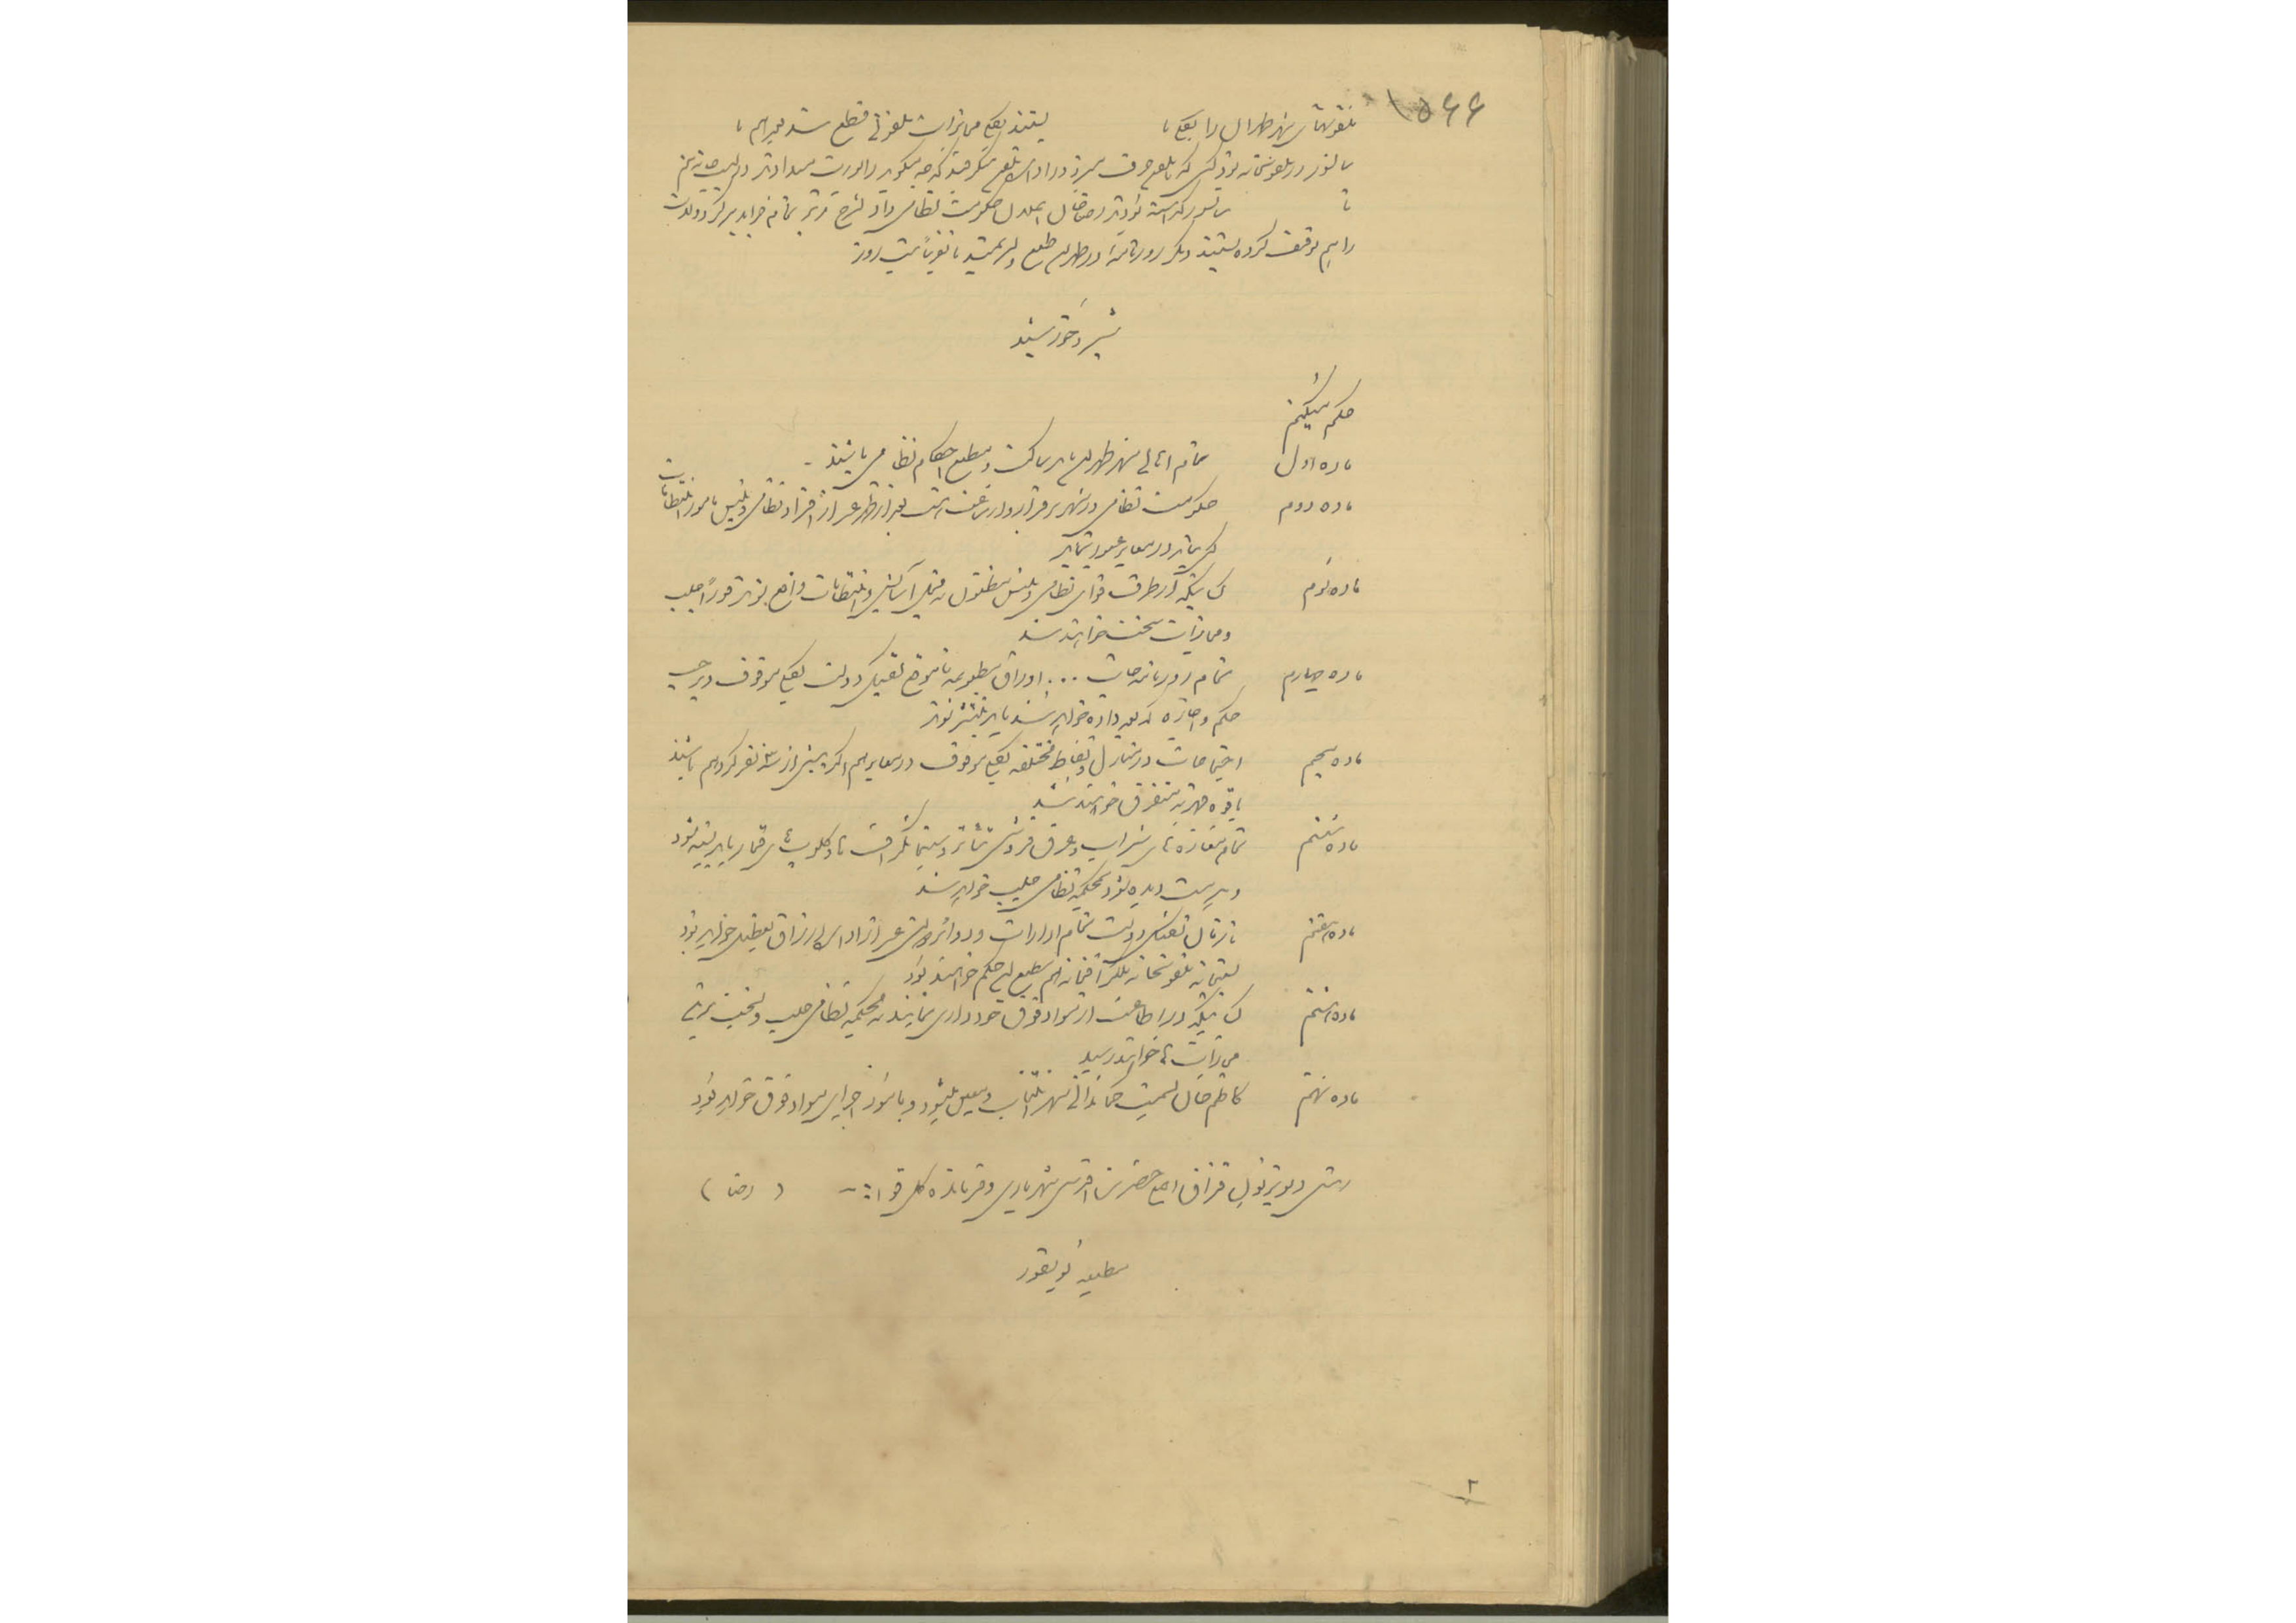 ۱۵۶۶
تلفونهای شهر طهران را بکلی تا بستند بکلی مخابرات تلفونی قطع شد بعد هم با
سانسور در تلفونخانه بود کسی که با تلفن حرف میزد در اداره تلفن
تا سانسور گذاشته بودند رضاخان اعلان حکومت نظامی داد بشرح زیر تمام جراید
را هم توقف کرده بستند دیگر روزنامه در طهران طبع و نشر نمیشد تا تقریباً بیست روز
شیر و خورشید
حکم میکنم
ماده اول تمام اهالی شهر طهران باید ساکت و مطیع احکام نظامی باشند -
ماده دوم حکومت نظامی در شهر برقرار و از ساعت هشت بعد از ظهر غیر از افراد نظامی و پلیس مامور انتظامات
کسی نباید در معابر عبور نماید
ماده سوم کسانیکه از طرف قوای نظامی و پلیس مظنون به مخل آسایش و انتظامات واقع شوند فوراً جلب
و مجازات سخت خواهند شد
ماده چهارم تمام روزنامه جات ... اوراق مطبوعه تا موقع تشکیل دولت بکلی موقوف و برحسب
حکم و اجازه که بعد داده خواهد شد باید منتشر شوند
ماده پنجم اجتماعات در منازل و نقاط مختلفه بکلی موقوف در معابر هم اگر بیش از سه نفر گرد هم باشند
با قوه قهریه متفرق خواهند شد
ماده ششم تمام مغازه های شراب و عرق فروشی تئاتر و سینما فتگراف ها و کلوپ های قمار باید بسته شود
و هر مست دیده شود بمحکمه نظامی جلب خواهد شد
ماده هفتم تا زمان تشکیل دولت تمام ادارات و دوائر دولتی غیر از اداره ارزاق تعطیل خواهد بود
پستخانه تلفونخانه تلگرافخانه هم مطیع این حکم خواهند بود
ماده هشتم کسانیکه در اطاعت از مواد فوق خودداری نمایند به محکمه نظامی جلب و بسخت ترین
مجازات ها خواهند رسید
ماده نهم کاظم خان بسمت کماندانی شهر انتخاب و معین میشود و مامور اجرای مواد فوق خواهد بود
رئیس دیویزیون قزاق اعلیحضرت اقدس شهریاری و فرمانده کل قوا :- ( رضا )
مطبعه
۲